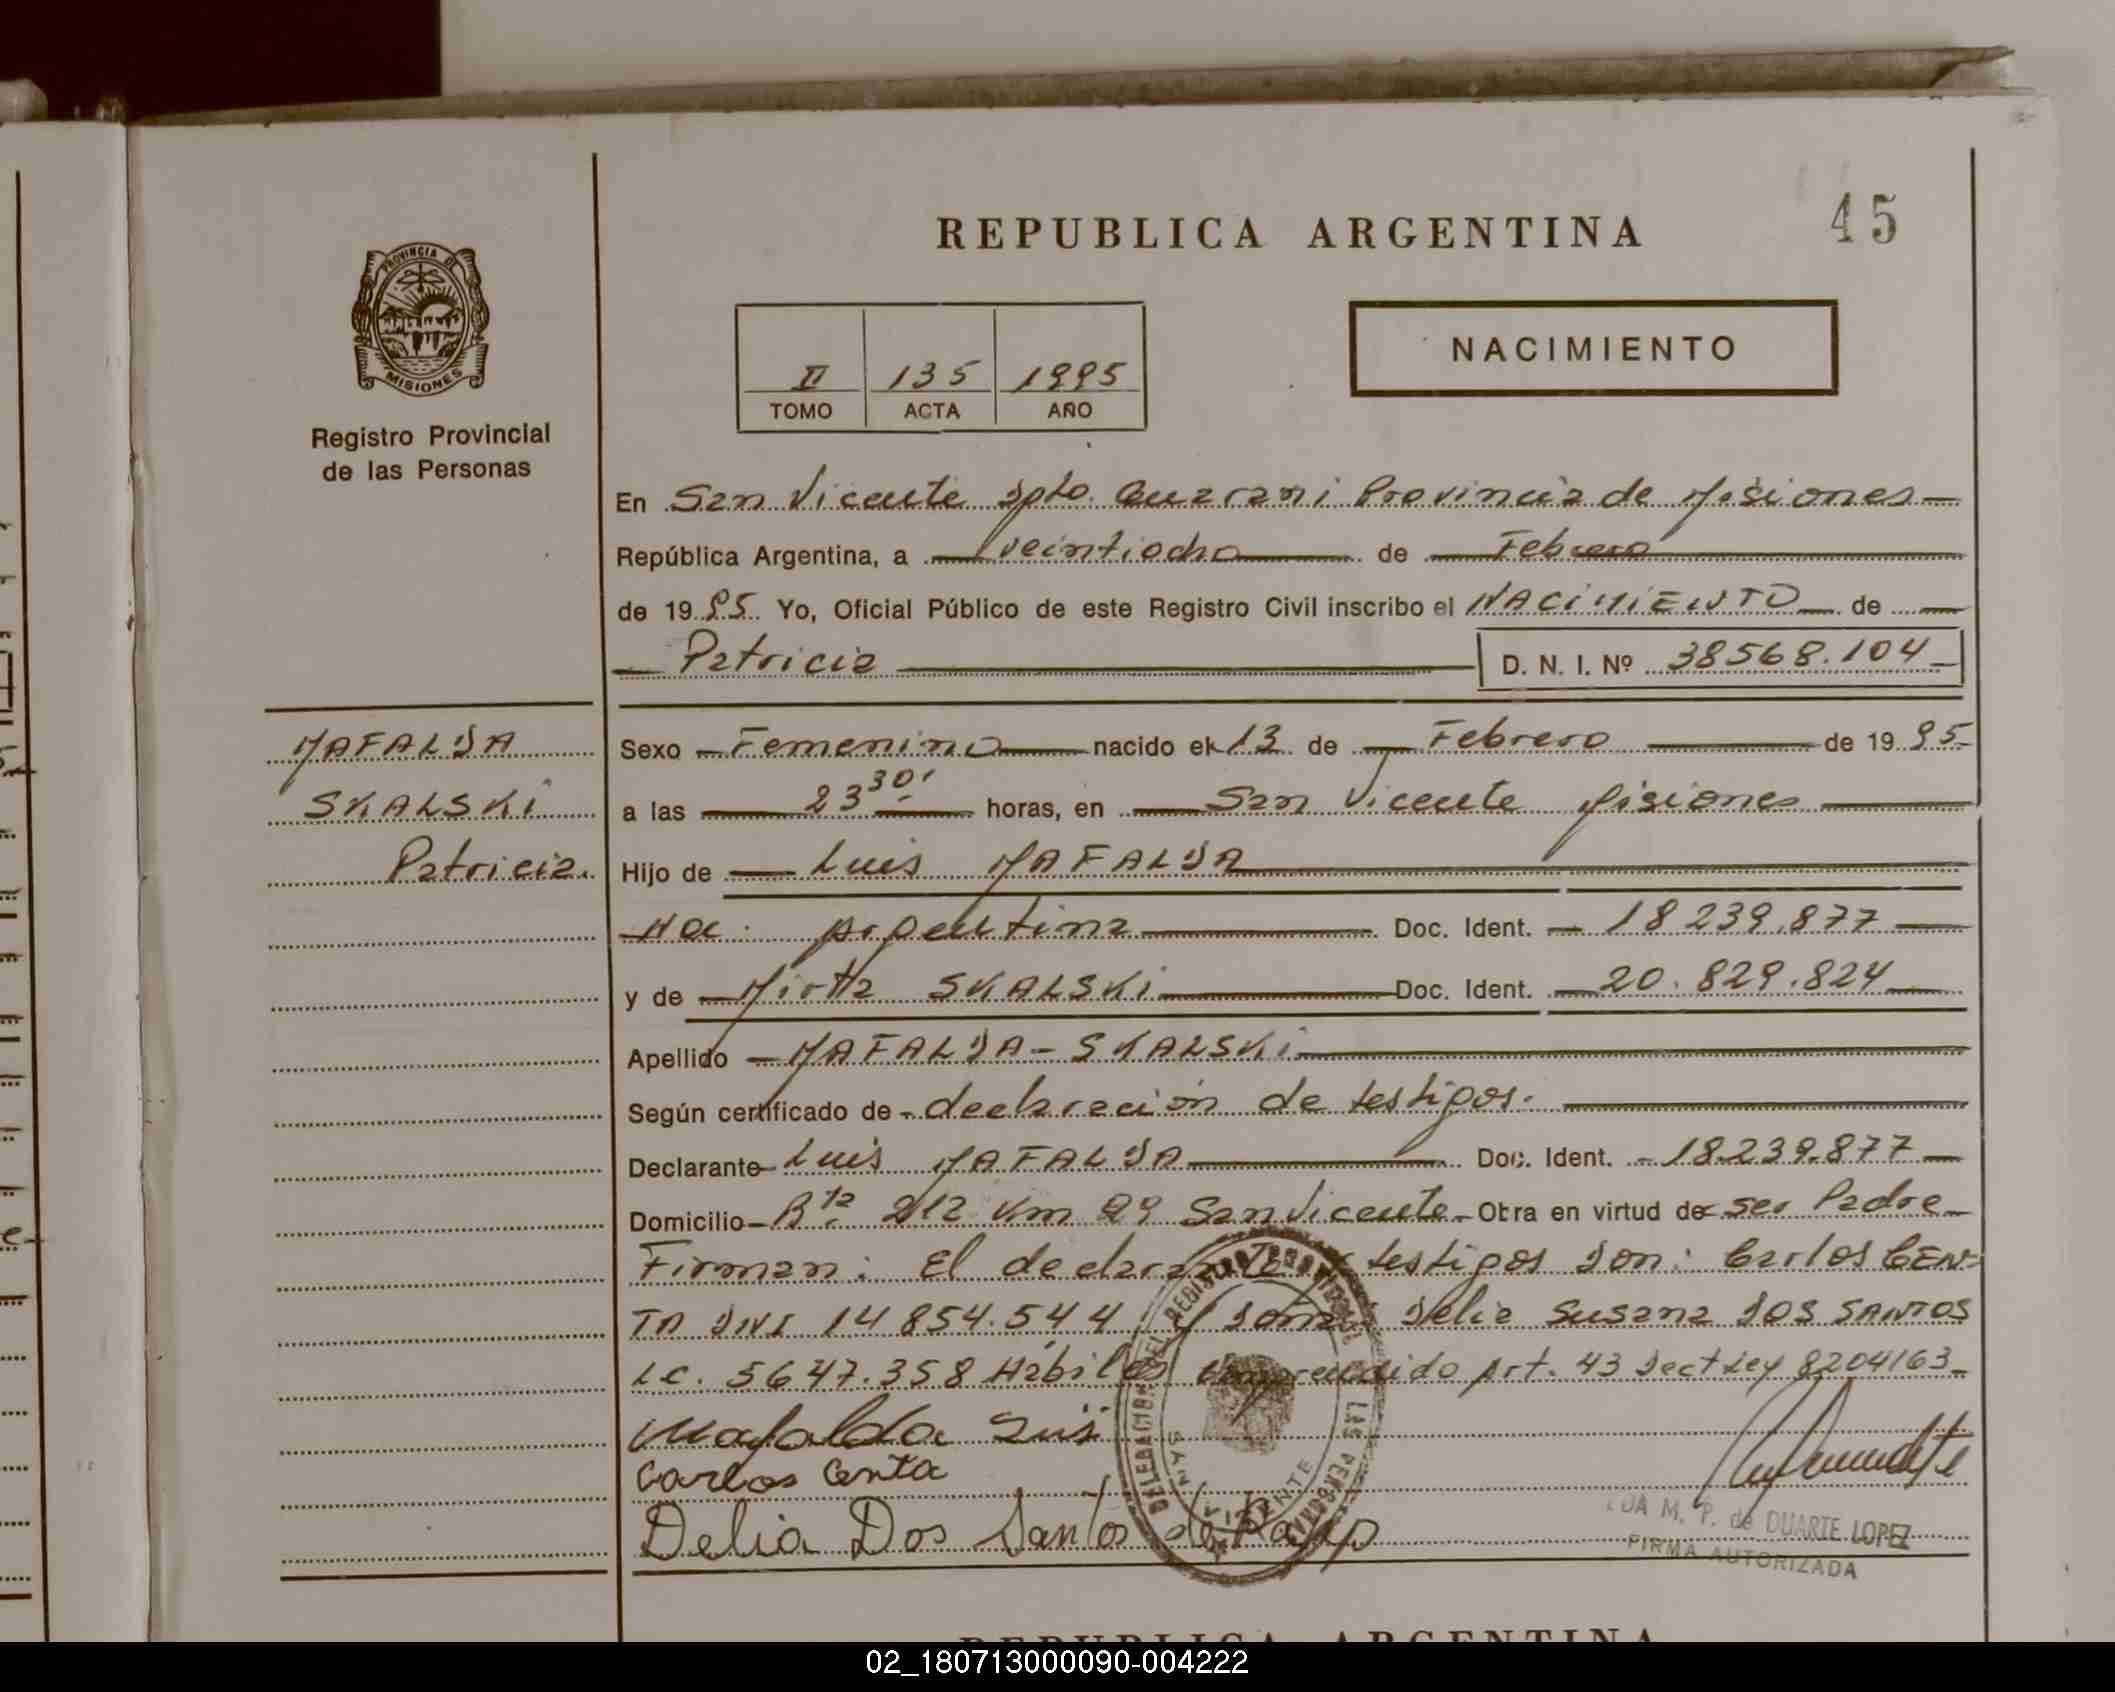 REPUBLICA ARGENTINA
45
PROVINCIA DE
MISIONES
Registro Provincial
de las Personas
II 135 1995
TOMO ACTA AÑO
NACIMIENTO
En San Vicente Dpto. Guarani Provincia de Misiones
República Argentina, a veintiocho de Febrero
de 1995 Yo, Oficial Público de este Registro Civil inscribo el NACIMIENTO de
Patricia D. N. I. Nº 38568.104
MAFALDA
SKALSKI
Patricia.
Sexo Femenino nacido el 13 de Febrero de 1995
a las 23 30' horas, en San Vicente Misiones
Hijo de Luis MAFALDA
Nac. Argentina Doc. Ident. 18239.877
y de Mirtha SKALSKI Doc. Ident. 20.829.824
Apellido MAFALDA-SKALSKI
Según certificado de declaración de testigos.
Declarante Luis MAFALDA Doc. Ident. 18.239.877
Domicilio Rta 212 Km 99 San Vicente Obra en virtud de ser Padre
Firman: El declarante y testigos Don: Carlos CEN-
TA DNI 14854.544 y Doña Delia Susana DOS SANTOS
LC. 5647.358 Hábiles Comprendido Art. 43 Dect Ley 8204/63
Mafalda Luis
Carlos Centa
Delia Dos Santos de
DELEGACION DEL REGISTRO PROVINCIAL DE LAS PERSONAS
SAN VICENTE
M. P. de DUARTE LOPEZ
FIRMA AUTORIZADA
REPUBLICA ARGENTINA
02_180713000090-004222